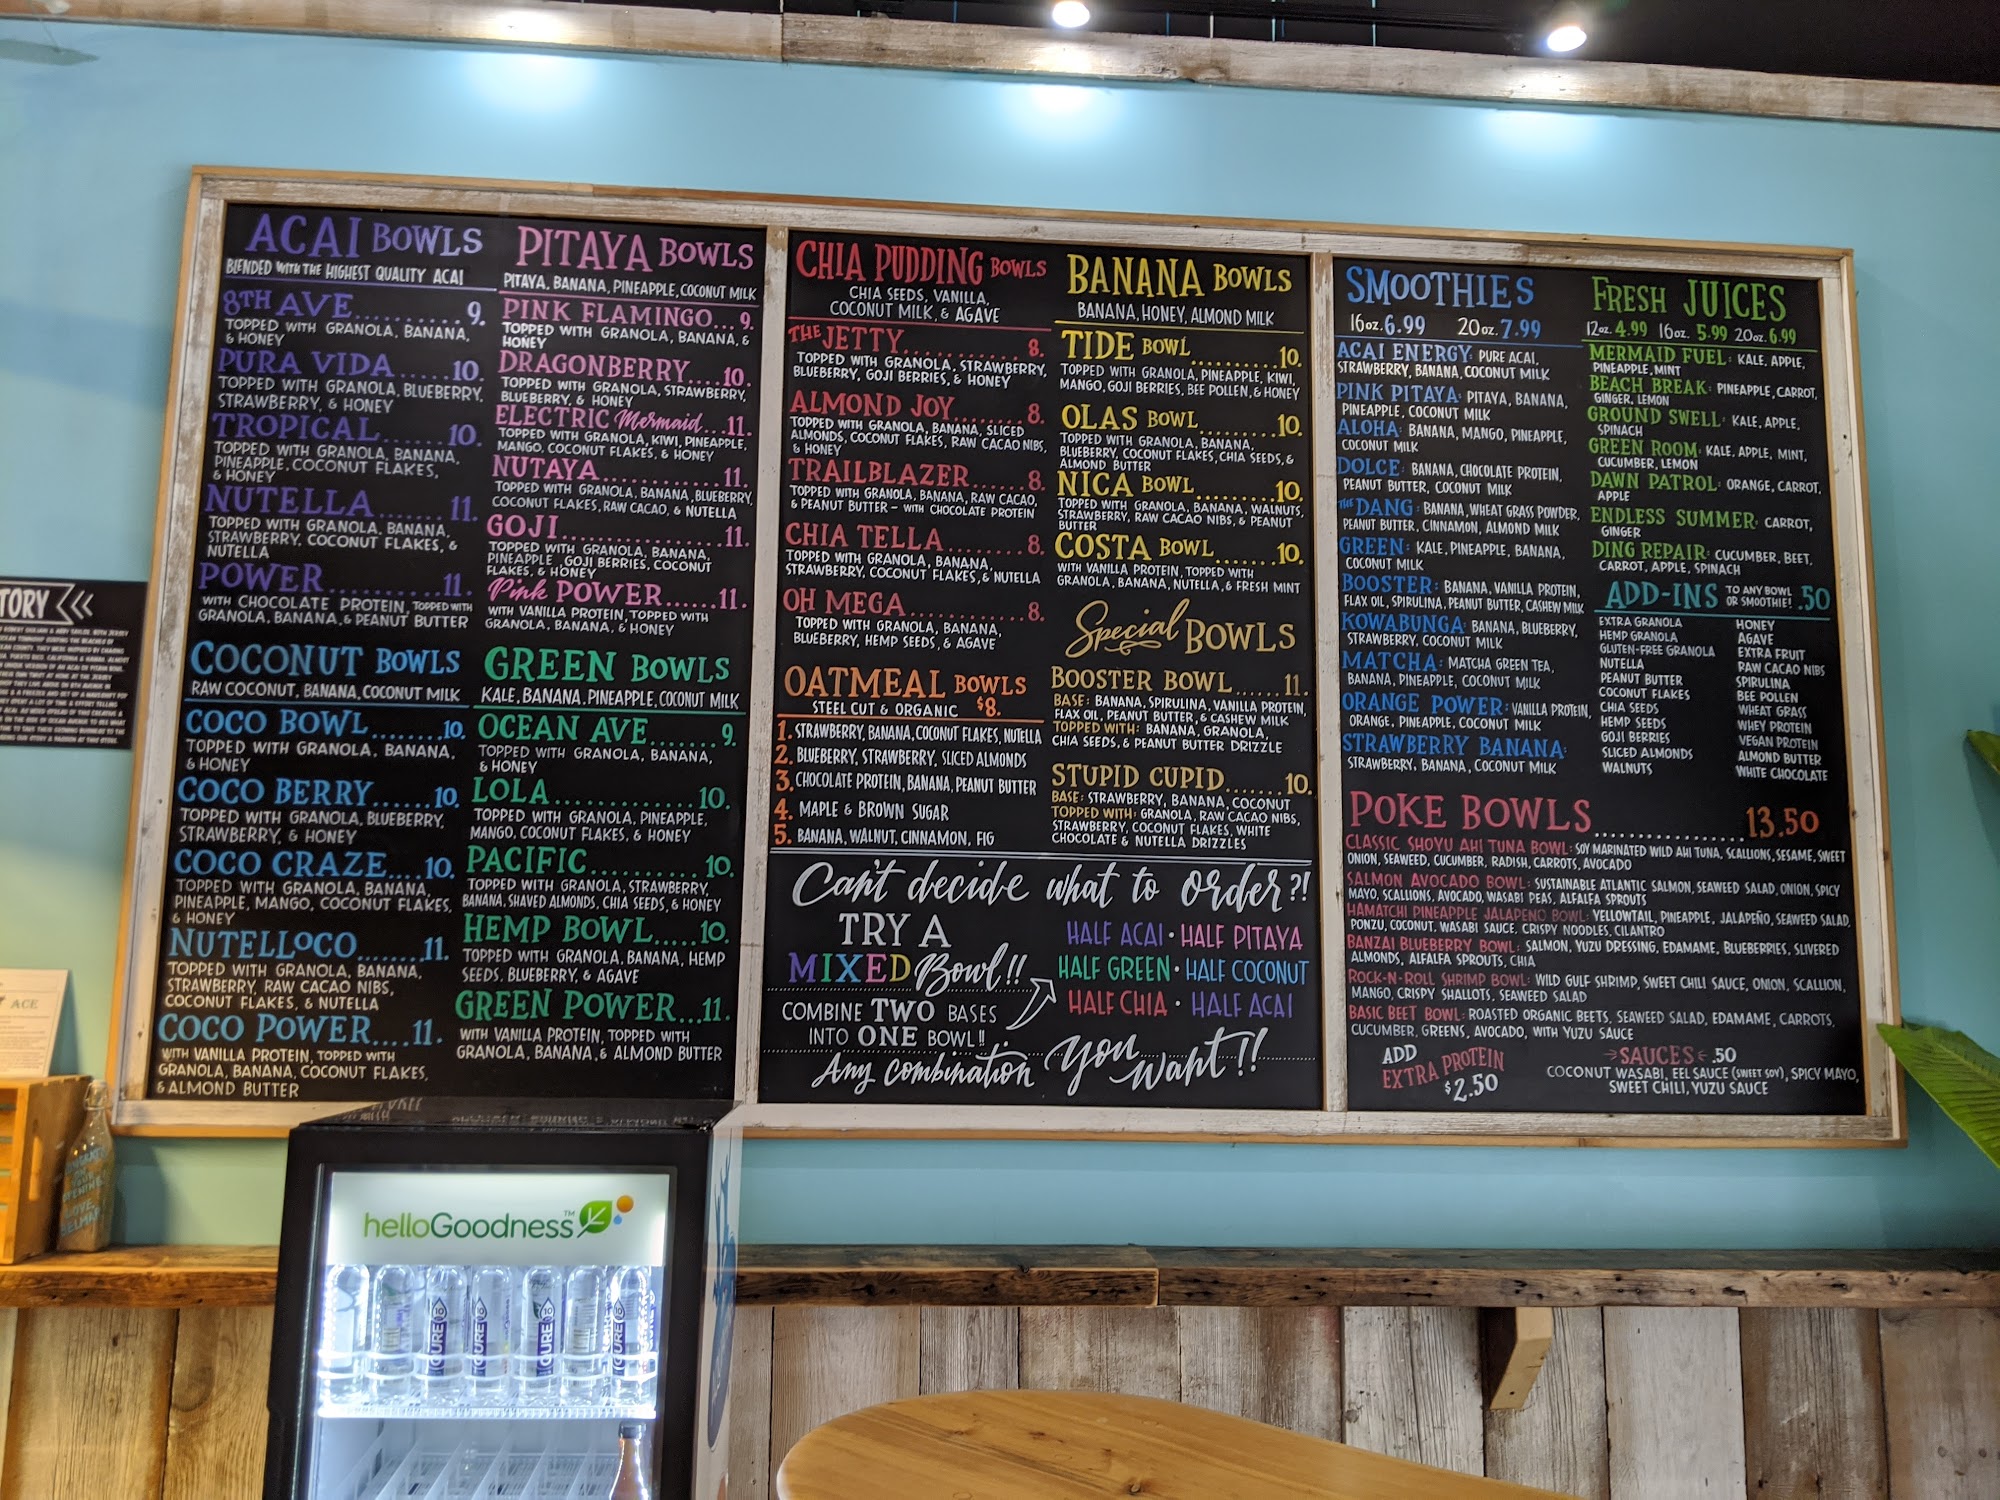 ACAI BOWLS
BLENDED WITH THE HIGHEST QUALITY ACAI
8TH AVE.......... 9.
TOPPED WITH GRANOLA, BANANA,
& HONEY
PURA VIDA ..... 10.
TOPPED WITH GRANOLA, BLUEBERRY,
STRAWBERRY, & HONEY
TROPICAL...... 10.
TOPPED WITH GRANOLA, BANANA,
PINEAPPLE, COCONUT FLAKES,
& HONEY
NUTELLA...... 11.
TOPPED WITH GRANOLA, BANANA,
STRAWBERRY, COCONUT FLAKES, &
NUTELLA
POWER......... 11.
WITH CHOCOLATE PROTEIN, TOPPED WITH
GRANOLA, BANANA, & PEANUT BUTTER
COCONUT BOWLS
RAW COCONUT, BANANA, COCONUT MILK
COCO BOWL...... 10.
TOPPED WITH GRANOLA, BANANA,
& HONEY
COCO BERRY...... 10.
TOPPED WITH GRANOLA, BLUEBERRY,
STRAWBERRY, & HONEY
COCO CRAZE.... 10.
TOPPED WITH GRANOLA, BANANA,
PINEAPPLE, MANGO, COCONUT FLAKES,
& HONEY
NUTELLOCO...... 11.
TOPPED WITH GRANOLA, BANANA,
STRAWBERRY, RAW CACAO NIBS,
COCONUT FLAKES, & NUTELLA
COCO POWER.... 11.
WITH VANILLA PROTEIN, TOPPED WITH
GRANOLA, BANANA, COCONUT FLAKES,
& ALMOND BUTTER
PITAYA BOWLS
PITAYA, BANANA, PINEAPPLE, COCONUT MILK
PINK FLAMINGO... 9.
TOPPED WITH GRANOLA, BANANA, &
HONEY
DRAGONBERRY.... 10.
TOPPED WITH GRANOLA, STRAWBERRY,
BLUEBERRY, & HONEY
ELECTRIC Mermaid... 11.
TOPPED WITH GRANOLA, KIWI, PINEAPPLE,
MANGO, COCONUT FLAKES, & HONEY
NUTAYA.......... 11.
TOPPED WITH GRANOLA, BANANA, BLUEBERRY,
COCONUT FLAKES, RAW CACAO, & NUTELLA
GOJI............. 11.
TOPPED WITH GRANOLA, BANANA,
PINEAPPLE, GOJI BERRIES, COCONUT
FLAKES, & HONEY
Pink POWER...... 11.
WITH VANILLA PROTEIN, TOPPED WITH
GRANOLA, BANANA, & HONEY
GREEN BOWLS
KALE, BANANA, PINEAPPLE, COCONUT MILK
OCEAN AVE....... 9.
TOPPED WITH GRANOLA, BANANA,
& HONEY
LOLA............. 10.
TOPPED WITH GRANOLA, PINEAPPLE,
MANGO, COCONUT FLAKES, & HONEY
PACIFIC.......... 10.
TOPPED WITH GRANOLA, STRAWBERRY,
BANANA, SHAVED ALMONDS, CHIA SEEDS, & HONEY
HEMP BOWL..... 10.
TOPPED WITH GRANOLA, BANANA, HEMP
SEEDS, BLUEBERRY, & AGAVE
GREEN POWER...11.
WITH VANILLA PROTEIN, TOPPED WITH
GRANOLA, BANANA, & ALMOND BUTTER
CHIA PUDDING BOWLS
CHIA SEEDS, VANILLA,
COCONUT MILK, & AGAVE
THE JETTY............ 8.
TOPPED WITH GRANOLA, STRAWBERRY,
BLUEBERRY, GOJI BERRIES, & HONEY
ALMOND JOY....... 8.
TOPPED WITH GRANOLA, BANANA, SLICED
ALMONDS, COCONUT FLAKES, RAW CACAO NIBS,
& HONEY
TRAILBLAZER...... 8.
TOPPED WITH GRANOLA, BANANA, RAW CACAO,
& PEANUT BUTTER - WITH CHOCOLATE PROTEIN
CHIA TELLA........ 8.
TOPPED WITH GRANOLA, BANANA,
STRAWBERRY, COCONUT FLAKES, & NUTELLA
OH MEGA............ 8.
TOPPED WITH GRANOLA, BANANA,
BLUEBERRY, HEMP SEEDS, & AGAVE
OATMEAL BOWLS
STEEL CUT & ORGANIC $8.
1. STRAWBERRY, BANANA, COCONUT FLAKES, NUTELLA
2. BLUEBERRY, STRAWBERRY, SLICED ALMONDS
3. CHOCOLATE PROTEIN, BANANA, PEANUT BUTTER
4. MAPLE & BROWN SUGAR
5. BANANA, WALNUT, CINNAMON, FIG
BANANA BOWLS
BANANA, HONEY, ALMOND MILK
TIDE BOWL.......... 10.
TOPPED WITH GRANOLA, PINEAPPLE, KIWI,
MANGO, GOJI BERRIES, BEE POLLEN, & HONEY
OLAS BOWL.......... 10.
TOPPED WITH GRANOLA, BANANA,
BLUEBERRY, COCONUT FLAKES, CHIA SEEDS, &
ALMOND BUTTER
NICA BOWL......... 10.
TOPPED WITH GRANOLA, BANANA, WALNUTS,
STRAWBERRY, RAW CACAO NIBS, & PEANUT
BUTTER
COSTA BOWL....... 10.
WITH VANILLA PROTEIN, TOPPED WITH
GRANOLA, BANANA, NUTELLA, & FRESH MINT
Special BOWLS
BOOSTER BOWL...... 11.
BASE: BANANA, SPIRULINA, VANILLA PROTEIN,
FLAX OIL, PEANUT BUTTER, & CASHEW MILK
TOPPED WITH: BANANA, GRANOLA,
CHIA SEEDS, & PEANUT BUTTER DRIZZLE
STUPID CUPID....... 10.
BASE: STRAWBERRY, BANANA, COCONUT
TOPPED WITH: GRANOLA, RAW CACAO NIBS,
STRAWBERRY, COCONUT FLAKES, WHITE
CHOCOLATE & NUTELLA DRIZZLES
Can't decide what to order?!
TRY A
MIXED Bowl!!
COMBINE TWO BASES
INTO ONE BOWL!!
HALF ACAI • HALF PITAYA
HALF GREEN • HALF COCONUT
HALF CHIA • HALF ACAI
Any combination you want!!
SMOOTHIES
16oz. 6.99 20oz. 7.99
ACAI ENERGY: PURE ACAI,
STRAWBERRY, BANANA, COCONUT MILK
PINK PITAYA: PITAYA, BANANA,
PINEAPPLE, COCONUT MILK
ALOHA: BANANA, MANGO, PINEAPPLE,
COCONUT MILK
DOLCE: BANANA, CHOCOLATE PROTEIN,
PEANUT BUTTER, COCONUT MILK
THE DANG: BANANA, WHEAT GRASS POWDER,
PEANUT BUTTER, CINNAMON, ALMOND MILK
GREEN: KALE, PINEAPPLE, BANANA,
COCONUT MILK
BOOSTER: BANANA, VANILLA PROTEIN,
FLAX OIL, SPIRULINA, PEANUT BUTTER, CASHEW MILK
KOWABUNGA: BANANA, BLUEBERRY,
STRAWBERRY, COCONUT MILK
MATCHA: MATCHA GREEN TEA,
BANANA, PINEAPPLE, COCONUT MILK
ORANGE POWER: VANILLA PROTEIN,
ORANGE, PINEAPPLE, COCONUT MILK
STRAWBERRY BANANA:
STRAWBERRY, BANANA, COCONUT MILK
FRESH JUICES
12oz. 4.99 16oz. 5.99 20oz. 6.99
MERMAID FUEL: KALE, APPLE,
PINEAPPLE, MINT
BEACH BREAK: PINEAPPLE, CARROT,
GINGER, LEMON
GROUND SWELL: KALE, APPLE,
SPINACH
GREEN ROOM: KALE, APPLE, MINT,
CUCUMBER, LEMON
DAWN PATROL: ORANGE, CARROT,
APPLE
ENDLESS SUMMER: CARROT,
GINGER
DING REPAIR: CUCUMBER, BEET,
CARROT, APPLE, SPINACH
ADD-INS TO ANY BOWL OR SMOOTHIE! .50
EXTRA GRANOLA
HEMP GRANOLA
GLUTEN-FREE GRANOLA
NUTELLA
PEANUT BUTTER
COCONUT FLAKES
CHIA SEEDS
HEMP SEEDS
GOJI BERRIES
SLICED ALMONDS
WALNUTS
HONEY
AGAVE
EXTRA FRUIT
RAW CACAO NIBS
SPIRULINA
BEE POLLEN
WHEAT GRASS
WHEY PROTEIN
VEGAN PROTEIN
ALMOND BUTTER
WHITE CHOCOLATE
POKE BOWLS................ 13.50
CLASSIC SHOYU AHI TUNA BOWL: SOY MARINATED WILD AHI TUNA, SCALLIONS, SESAME, SWEET
ONION, SEAWEED, CUCUMBER, RADISH, CARROTS, AVOCADO
SALMON AVOCADO BOWL: SUSTAINABLE ATLANTIC SALMON, SEAWEED SALAD, ONION, SPICY
MAYO, SCALLIONS, AVOCADO, WASABI PEAS, ALFALFA SPROUTS
HAMATCHI PINEAPPLE JALAPENO BOWL: YELLOWTAIL, PINEAPPLE, JALAPEÑO, SEAWEED SALAD,
PONZU, COCONUT, WASABI SAUCE, CRISPY NOODLES, CILANTRO
BANZAI BLUEBERRY BOWL: SALMON, YUZU DRESSING, EDAMAME, BLUEBERRIES, SLIVERED
ALMONDS, ALFALFA SPROUTS, CHIA
ROCK-N-ROLL SHRIMP BOWL: WILD GULF SHRIMP, SWEET CHILI SAUCE, ONION, SCALLION,
MANGO, CRISPY SHALLOTS, SEAWEED SALAD
BASIC BEET BOWL: ROASTED ORGANIC BEETS, SEAWEED SALAD, EDAMAME, CARROTS,
CUCUMBER, GREENS, AVOCADO, WITH YUZU SAUCE
ADD
EXTRA PROTEIN
$2.50
SAUCES .50
COCONUT WASABI, EEL SAUCE (SWEET SOY), SPICY MAYO,
SWEET CHILI, YUZU SAUCE
TORY
ACE
helloGoodness™
QURE 10
QURE
QURE 10
QURE